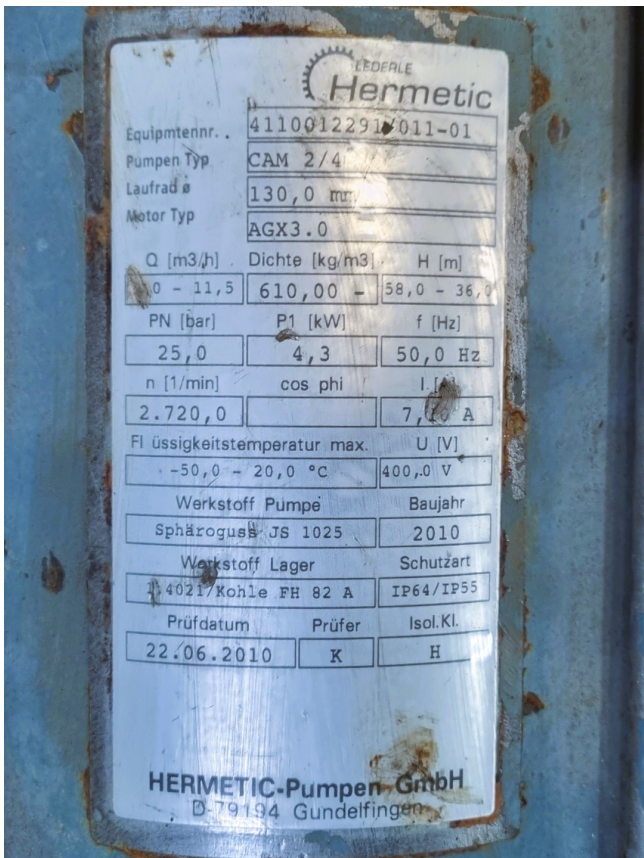 LEDERLE
Hermetic
Equipmtennr. . 4110012291/011-01
Pumpen Typ CAM 2/4
Laufrad ø 130,0 mm
Motor Typ AGX3.0
Q [m3/h] Dichte [kg/m3] H [m]
- 11,5 610,00 - 58,0 - 36,0
PN [bar] P1 [kW] f [Hz]
25,0 4,3 50,0 Hz
n [1/min] cos phi I
2.720,0 A
Fl üssigkeitstemperatur max. U [V]
-50,0 - 20,0 °C 400,0 V
Werkstoff Pumpe Baujahr
Sphäroguss JS 1025 2010
Werkstoff Lager Schutzart
1.4021/Kohle FH 82 A IP64/IP55
Prüfdatum Prüfer Isol.Kl.
22.06.2010 K H
HERMETIC-Pumpen GmbH
D-79194 Gundelfingen